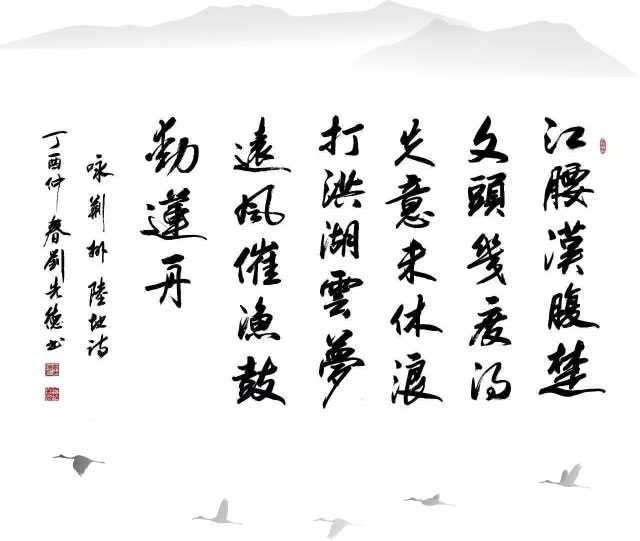 江腰漢腹楚
文頭幾度得
失意未休浪
打洪湖雲夢
遠風催漁鼓
動蓮舟
咏荆州陸地詩
丁酉仲春劉先德書